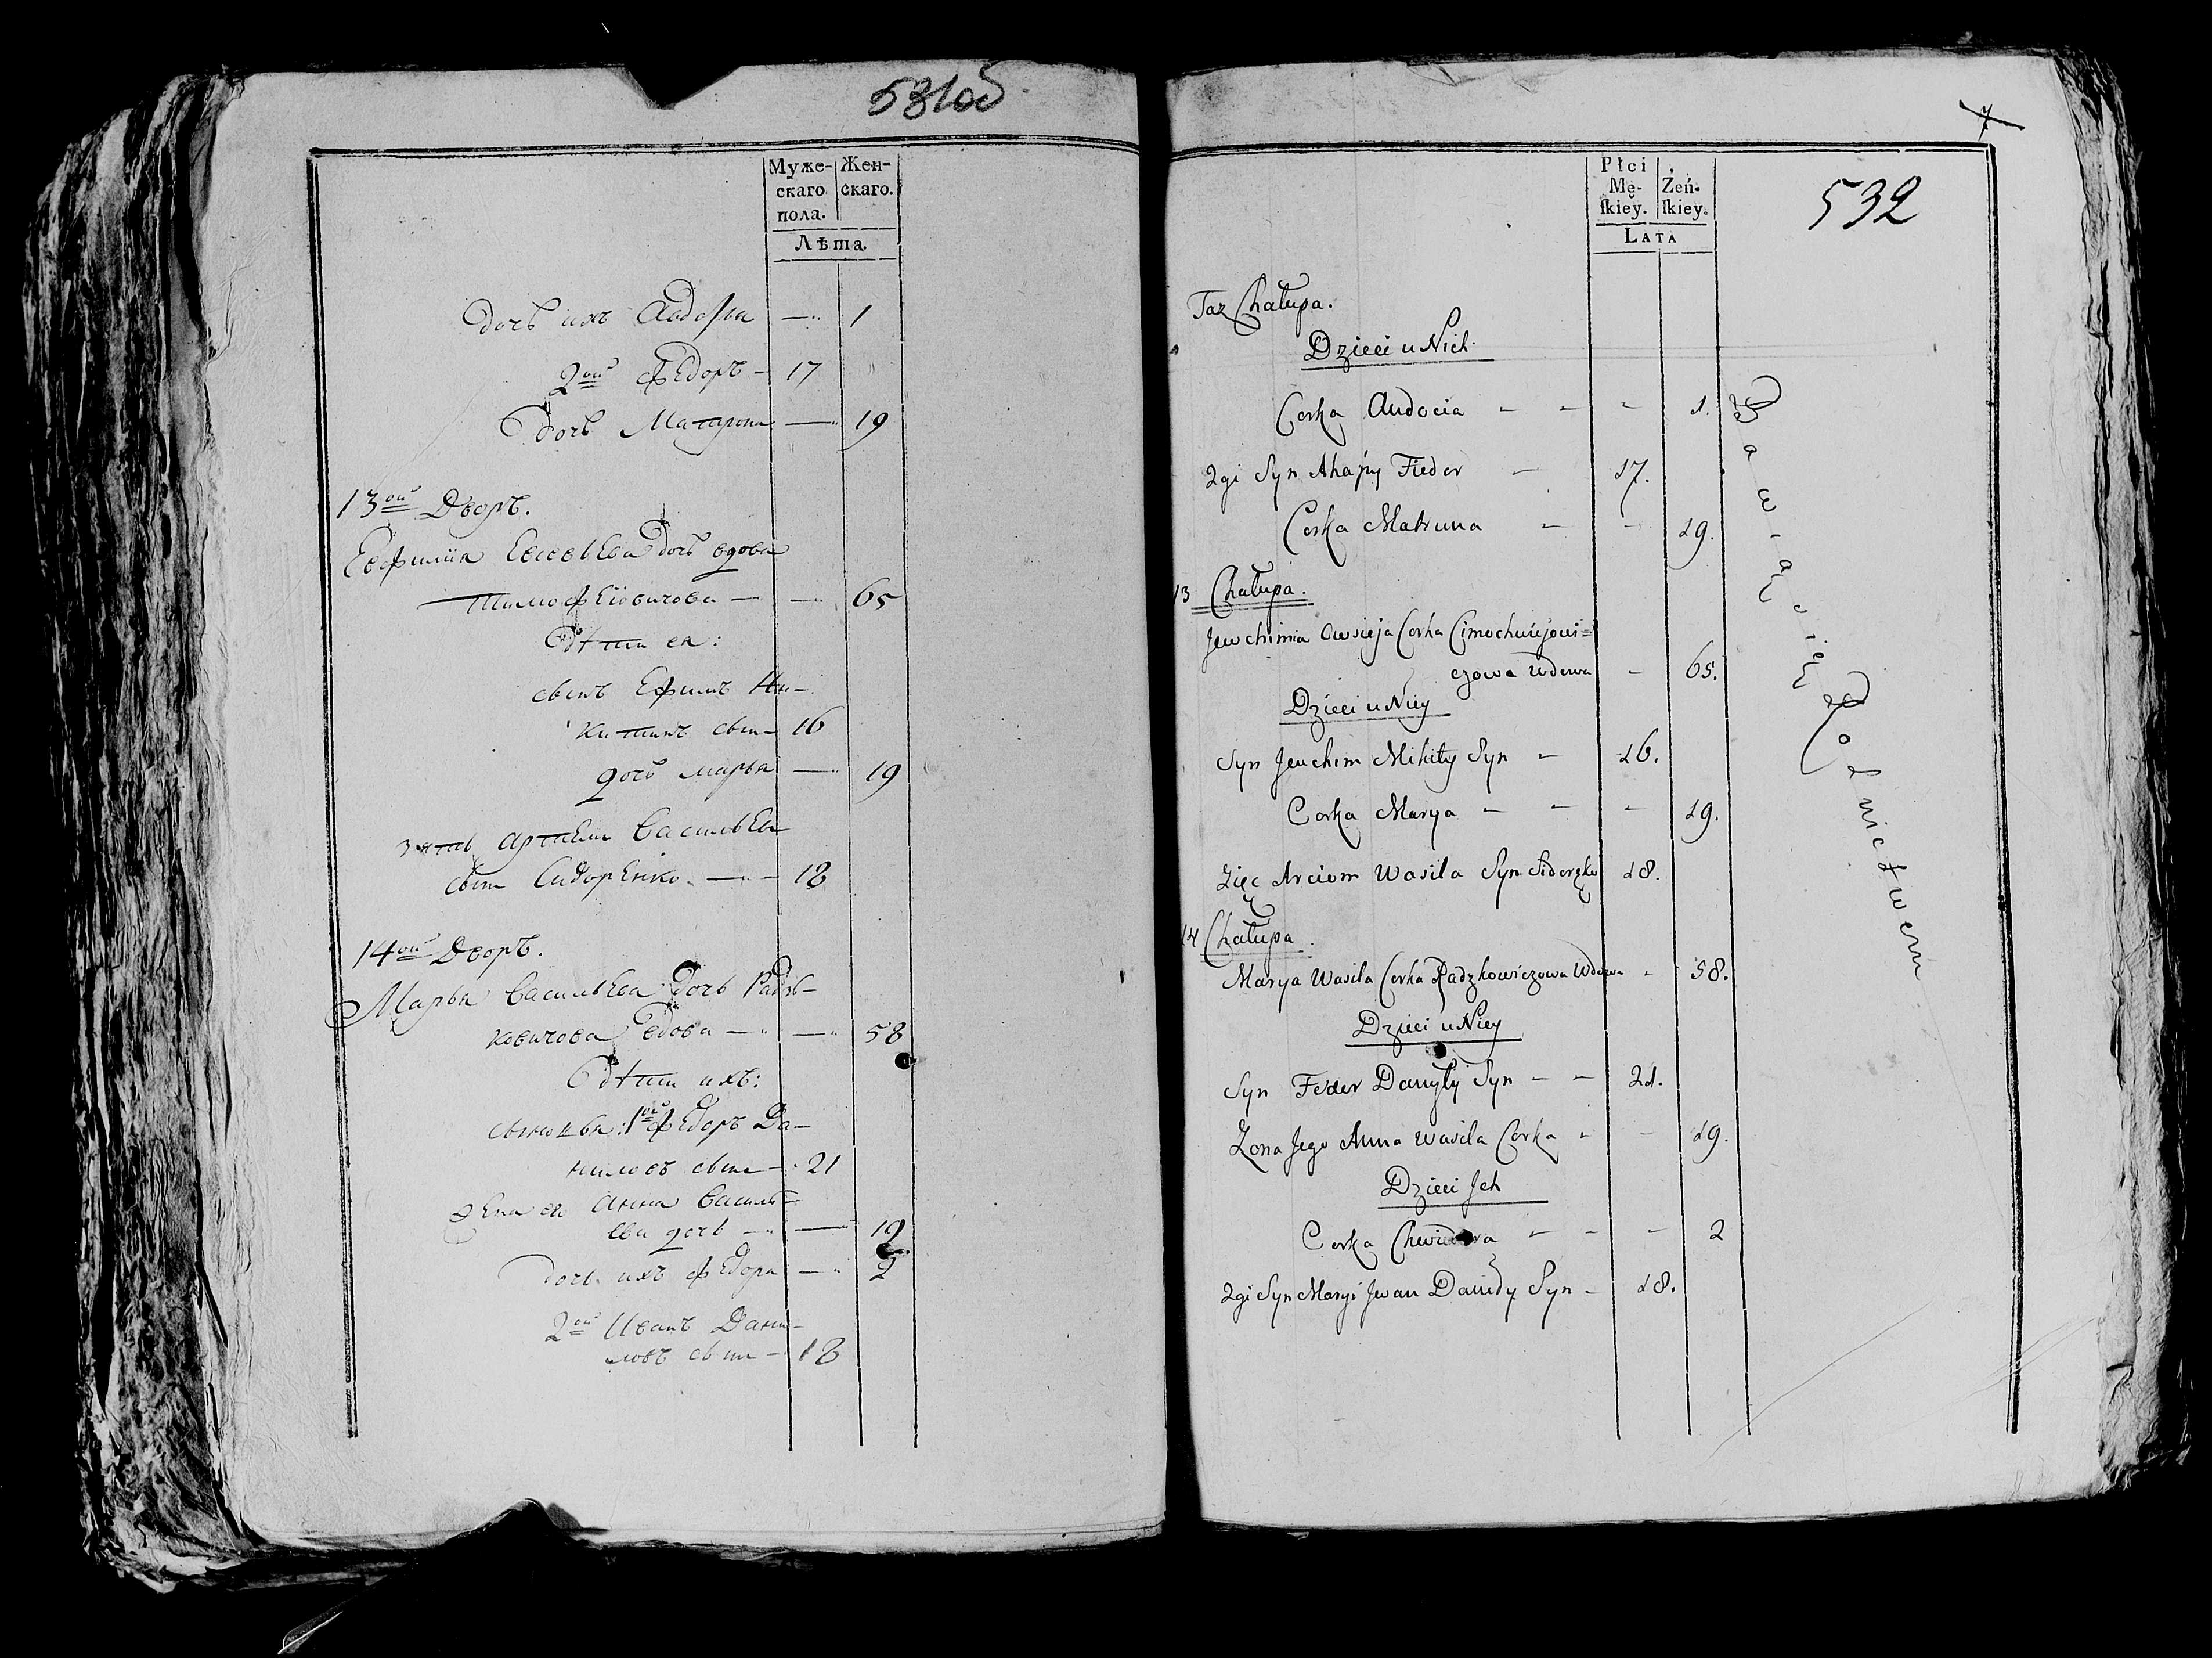 531об
Муже-
скаго
пола.
Жен-
скаго.
Лѣта.
дочь ихъ Авдотья — 1
2ой Федоръ - 17
дочь Матрона — 19
13ой Дворъ.
Евфимія Евсѣева дочь вдова
Тимофеіовичова — — 65
Дѣти ея:
сынъ Ефимъ Ни-
китинъ сынъ 16
дочь марья — 19
зять Артемъ Васильев
сынъ Сидоренко — 18
14ой Дворъ.
Марья Васильева дочь Радзь-
ковичова вдова — — 58
Дѣти ихъ:
сыновья: 1ой Федоръ Да-
ниловъ сынъ - 21
Жена ево Анна Василь-
ева дочь — — 19
дочь ихъ Федора — 2
2ой Иванъ Дани-
ловъ сынъ - 18
7
532
Płci
Mę-
ſkiey.
Żeń-
ſkiey.
Lata
Taz Chałupa.
Dzieci u Nich
Corka Audocia - - - 1.
2gi Syn Ahapy Fiedor - 17.
Corka Matruna - - 19.
13 Chałupa.
Jewchimia Awsieja Corka Cimochwiejowi=
czowa wdowa - 65.
Dzieci u Niey
Syn Jeuchim Mikity Syn - 16.
Corka Marya - - - 19.
Zięć Arciom Wasila Syn Sidoręko 18.
14 Chałupa.
Marya Wasila Corka Radzkowiczowa Wdowa - 58.
Dzieci u Niey
Syn Fedor Danyły Syn - - 21.
Zona Jego Anna Wasila Corka - - 19.
Dzieci Jch
Corka Chwiedora - - - 2
2gi Syn Maryi Jwan Daniły Syn - 18.
Bawią się Rolnictwem